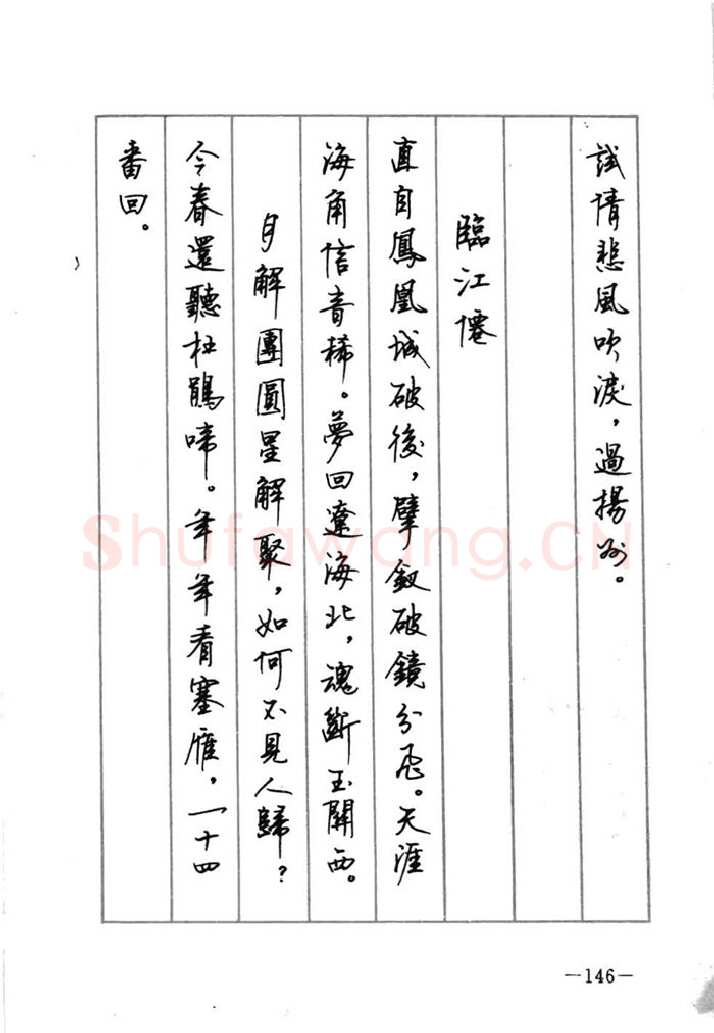 試倩悲風吹淚，過揚州。
臨江僊
直自鳳凰城破後，擘釵破鏡分飛。天涯
海角信音稀。夢回遼海北，魂斷玉關西。
月解團圓星解聚，如何不見人歸？
今春還聽杜鵑啼。年年看塞雁，一十四
番回。
Shufawang.CN
—146—